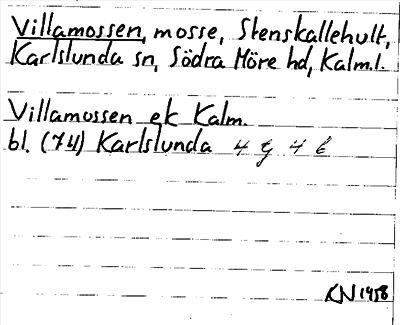 Villamossen, mosse, Stenskallehult,
Karlslunda sn, Södra Möre hd, Kalm.l.
Villamossen ek Kalm.
bl. (74) Karlslunda 4 g 4 b
KN 1958